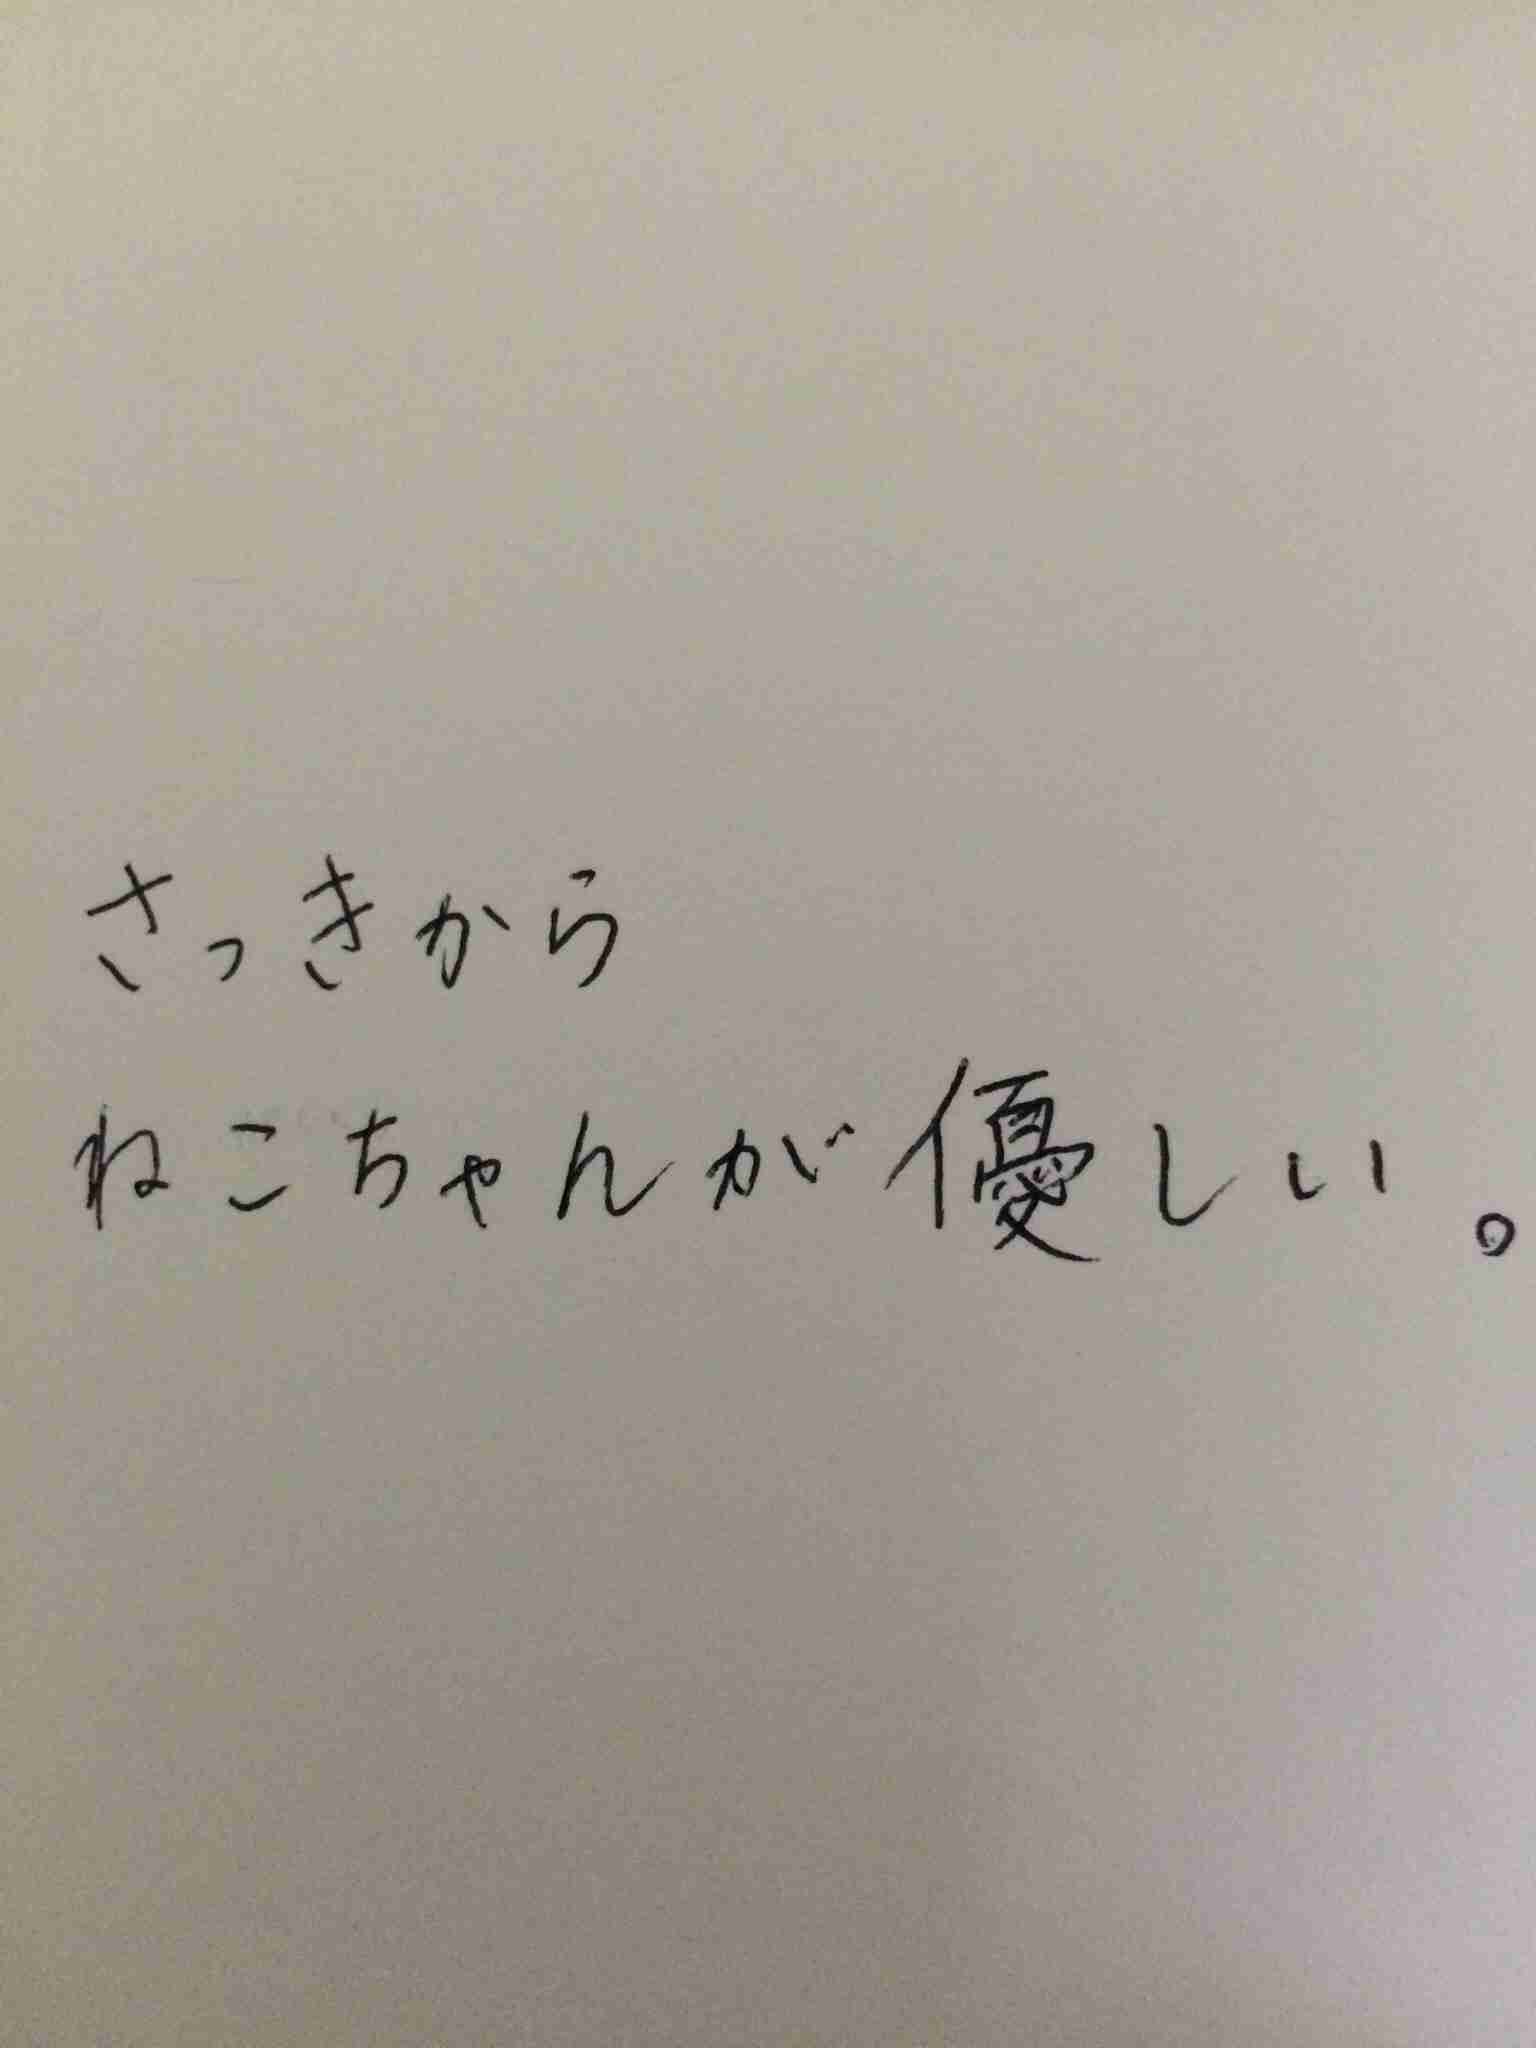 さっきから
ねこちゃんが優しい。